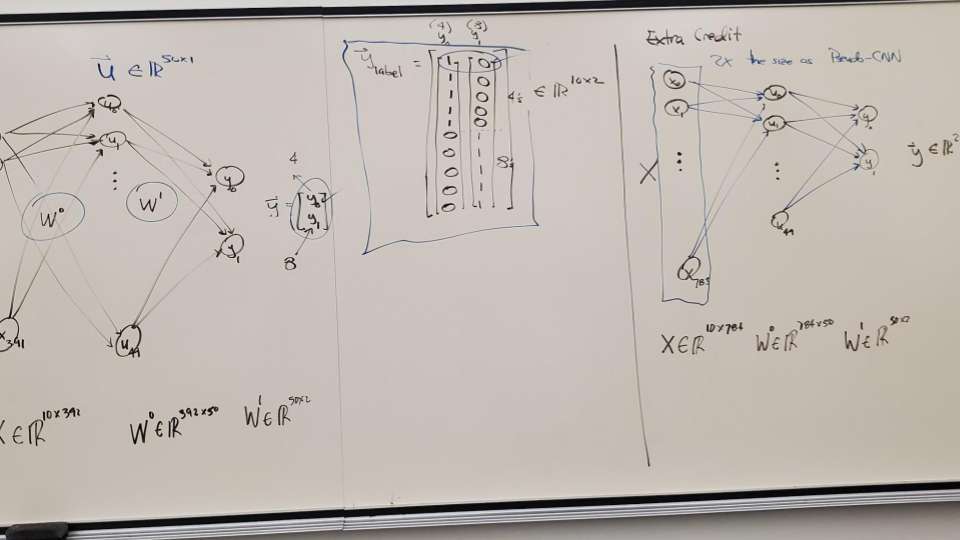 u ∈ ℝ^50x1
u₀
u₁
⋮
W⁰
W¹
y₀
y₁
x₃₉₁
u₄₉
4
y = [y₀
y₁]
8
X ∈ ℝ^10x392 W⁰ ∈ ℝ^392x50 W¹ ∈ ℝ^50x2
(4) (8)
y₀ y₁
y label = ∈ ℝ^10x2
1 0
1 0
1 0
1 0
1 0
0 1
0 1
0 1
0 1
0 1
4's
8's
Extra Credit
2X the size as Pseudo-CNN
X₀
X₁
⋮
X
X₇₈₃
u₀
u₁
⋮
u₄₉
y₀
y₁
y ∈ ℝ²
X ∈ ℝ^10x784 W⁰ ∈ ℝ^784x50 W¹ ∈ ℝ^50x2